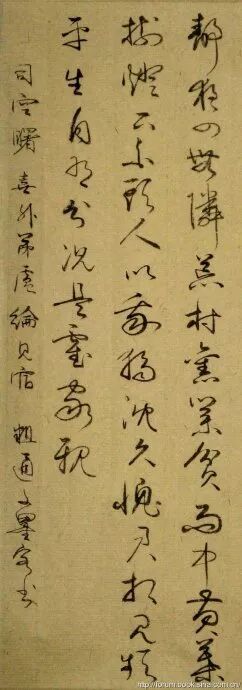 靜夜四無隣荒村舊業貧雨中黄葉
樹燈下白頭人以我獨沈久愧君相見頻
平生自有分况是霍家親
司空曙 喜外弟盧綸見宿 粗通文墨客书
http://forum.book.sina.com.cn/